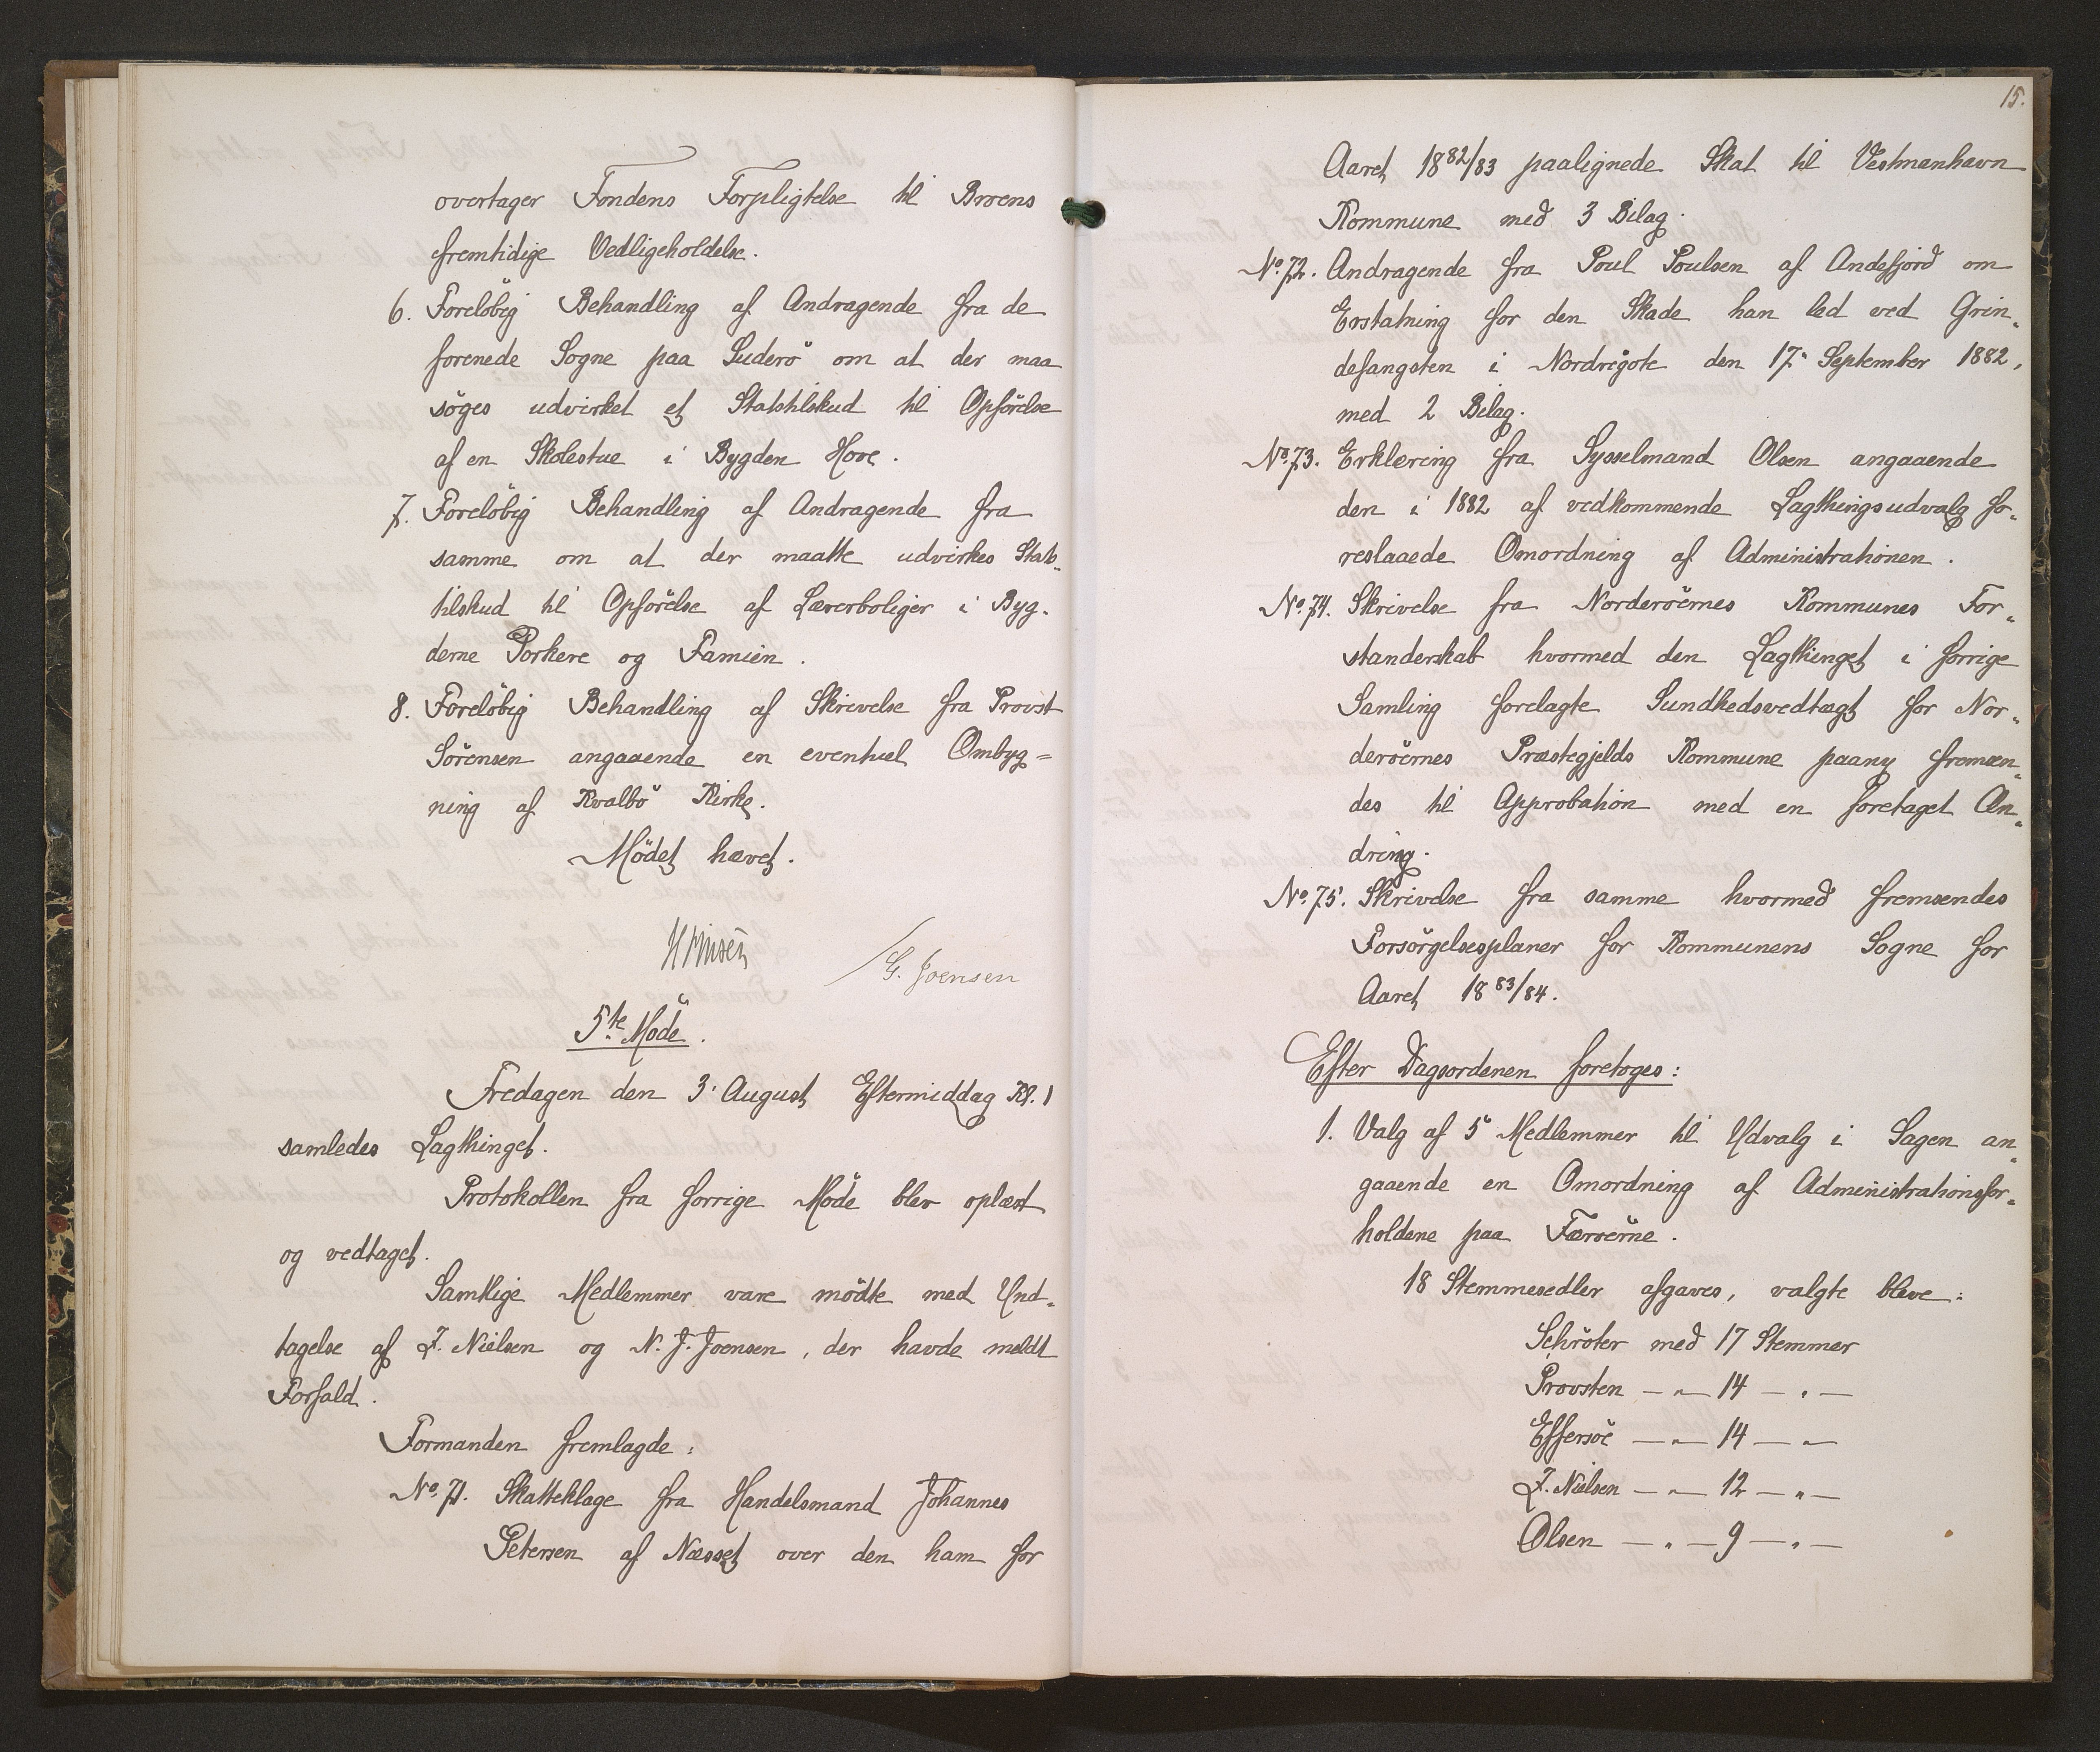 overtager Fondens Forpligtelse til Broens
fremtidige Vedligeholdelse.
6. Foreløbig Behandling af Andragende fra de
forenede Sogne paa Suderö om at der maa
söges udvirket et Statstilskud til Opförelse
af en Skolestue i Bygden Hove.
7. Forelöbig Behandling af Andragende fra
samme om at der maatte udvirkes Stats„
tilskud til Opförelse af Lærerboliger i Byg„
derne Porkere og Famien.
8. Forelöbig Behandling af Skrivelse fra Provst
Sörensen angaaende en eventuel Ombyg=
ning af Kvalbö Kirke.
Mödet hævet.
G. Joensen
5te Möde.
Fredagen den 3. August Eftermiddag Kl. 1
samledes Lagthinget.
Protokollen fra forrige Möde blev oplæst
og vedtaget.
Samtlige Medlemmer vare mödte med Und„
tagelse af J. Nielsen og N. J. Joensen, der havde meldt
Forfald.
Formanden fremlagde:
No. 71. Skatteklage fra Handelsmand Johannes
Petersen af Næsset over den ham for
15.
Aaret 1882/83 paalignede Skat til Vestmanhavn
Kommune med 3 Bilag.
No. 72. Andragende fra Poul Poulsen af Andefjord om
Erstatning for den Skade han led ved Grin„
defangsten i Nordregöte den 17. September 1882,
med 2 Bilag.
No. 73. Erklering fra Sysselmand Olsen angaaende
den i 1882 af vedkommende Lagthingsudvalg fo„
reslaaede Omordning af Administrationen.
No. 74. Skrivelse fra Norderöernes Kommunes For„
standerskab hvormed den Lagthinget i forrige
Samling forelagte Sundhedsvedtægt for Nor„
deröernes Præstegjelds Kommune paany fremsen„
des til Approbation med en foretaget Æn„
dring.
No. 75. Skrivelse fra samme hvormed fremsendes
Forsörgelsesplaner for Kommunens Sogne for
Aaret 1883/84.
Efter Dagsordenen foretoges:
1. Valg af 5 Medlemmer til Udvalg i Sagen an„
gaaende en Omordning af Administrationsfor„
holdene paa Færöerne.
18 Stemmesedler afgaves, valgte bleve:
Schröter med 17 Stemmer
Provsten — „ — 14 — „ —
Effersöe — „ — 14 — „ —
J. Nielsen — „ — 12 — „ —
Olsen — „ — 9 — „ —